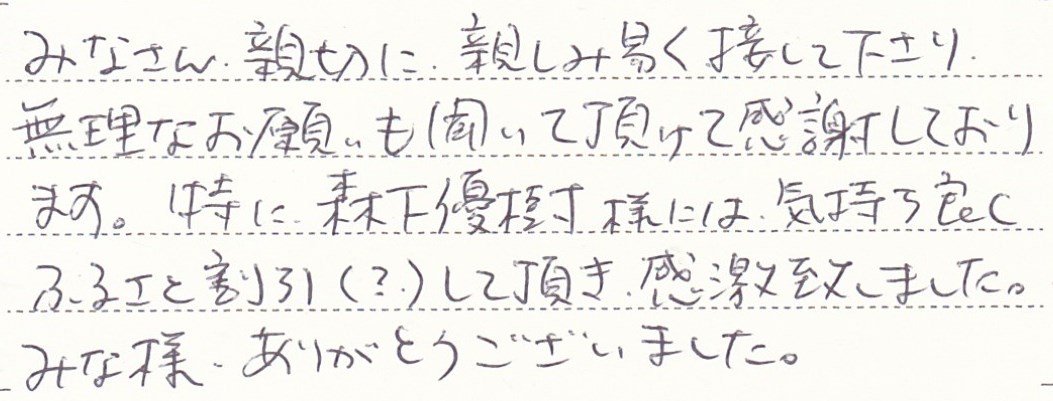 みなさん、親切に、親しみ易く接して下さり、
無理なお願いも聞いて頂けて感謝しており
ます。特に、森下優樹様には、気持ち良く
ズバッと割引(?)して頂き、感激致しました。
みな様、ありがとうございました。